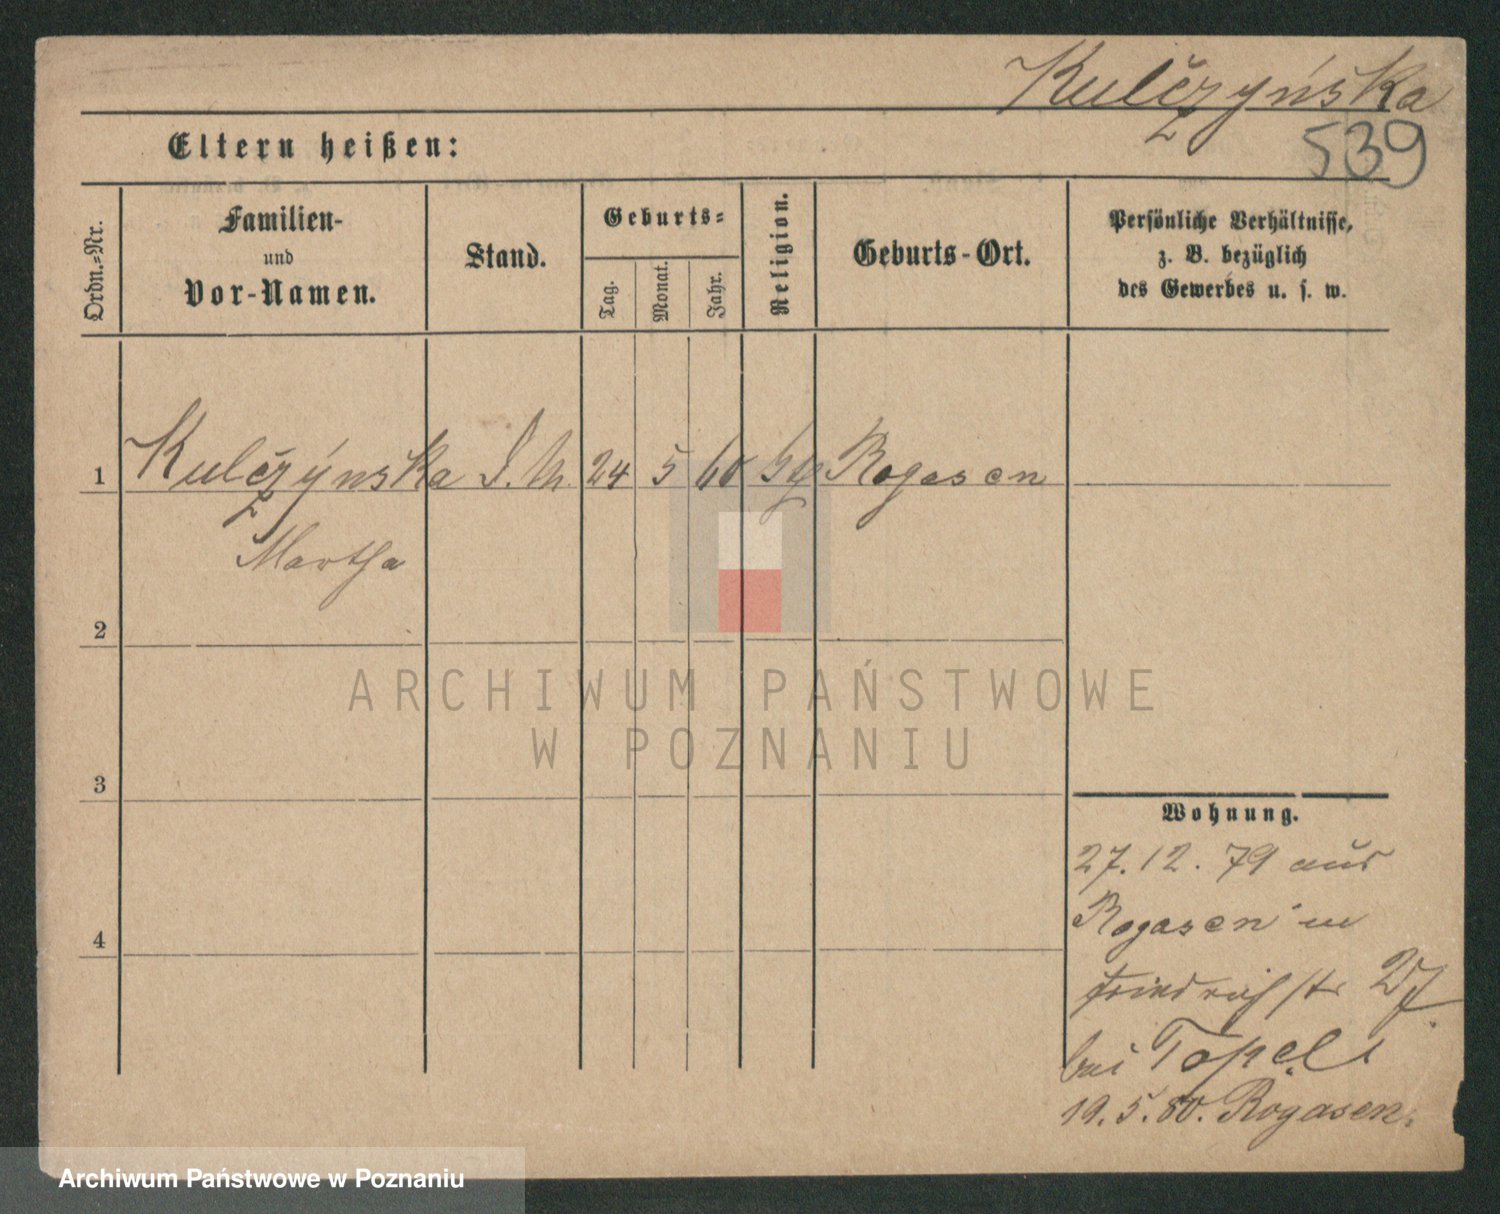 Kulczyńska
539
Eltern heißen:
Ordn.-Nr.
Familien-
und
Vor-Namen.
Stand.
Geburts-
Tag.
Monat.
Jahr.
Religion.
Geburts-Ort.
Persönliche Verhältnisse,
z. B. bezüglich
des Gewerbes u. s. w.
1 Kulczynska 24 5 60 Rogasen
Martha
2
ARCHIWUM PAŃSTWOWE
W POZNANIU
3
Wohnung.
27.12.79 aus
Rogasen in
Friedrichstr 27.
4
bei
19.5.80. Rogasen.
Archiwum Państwowe w Poznaniu